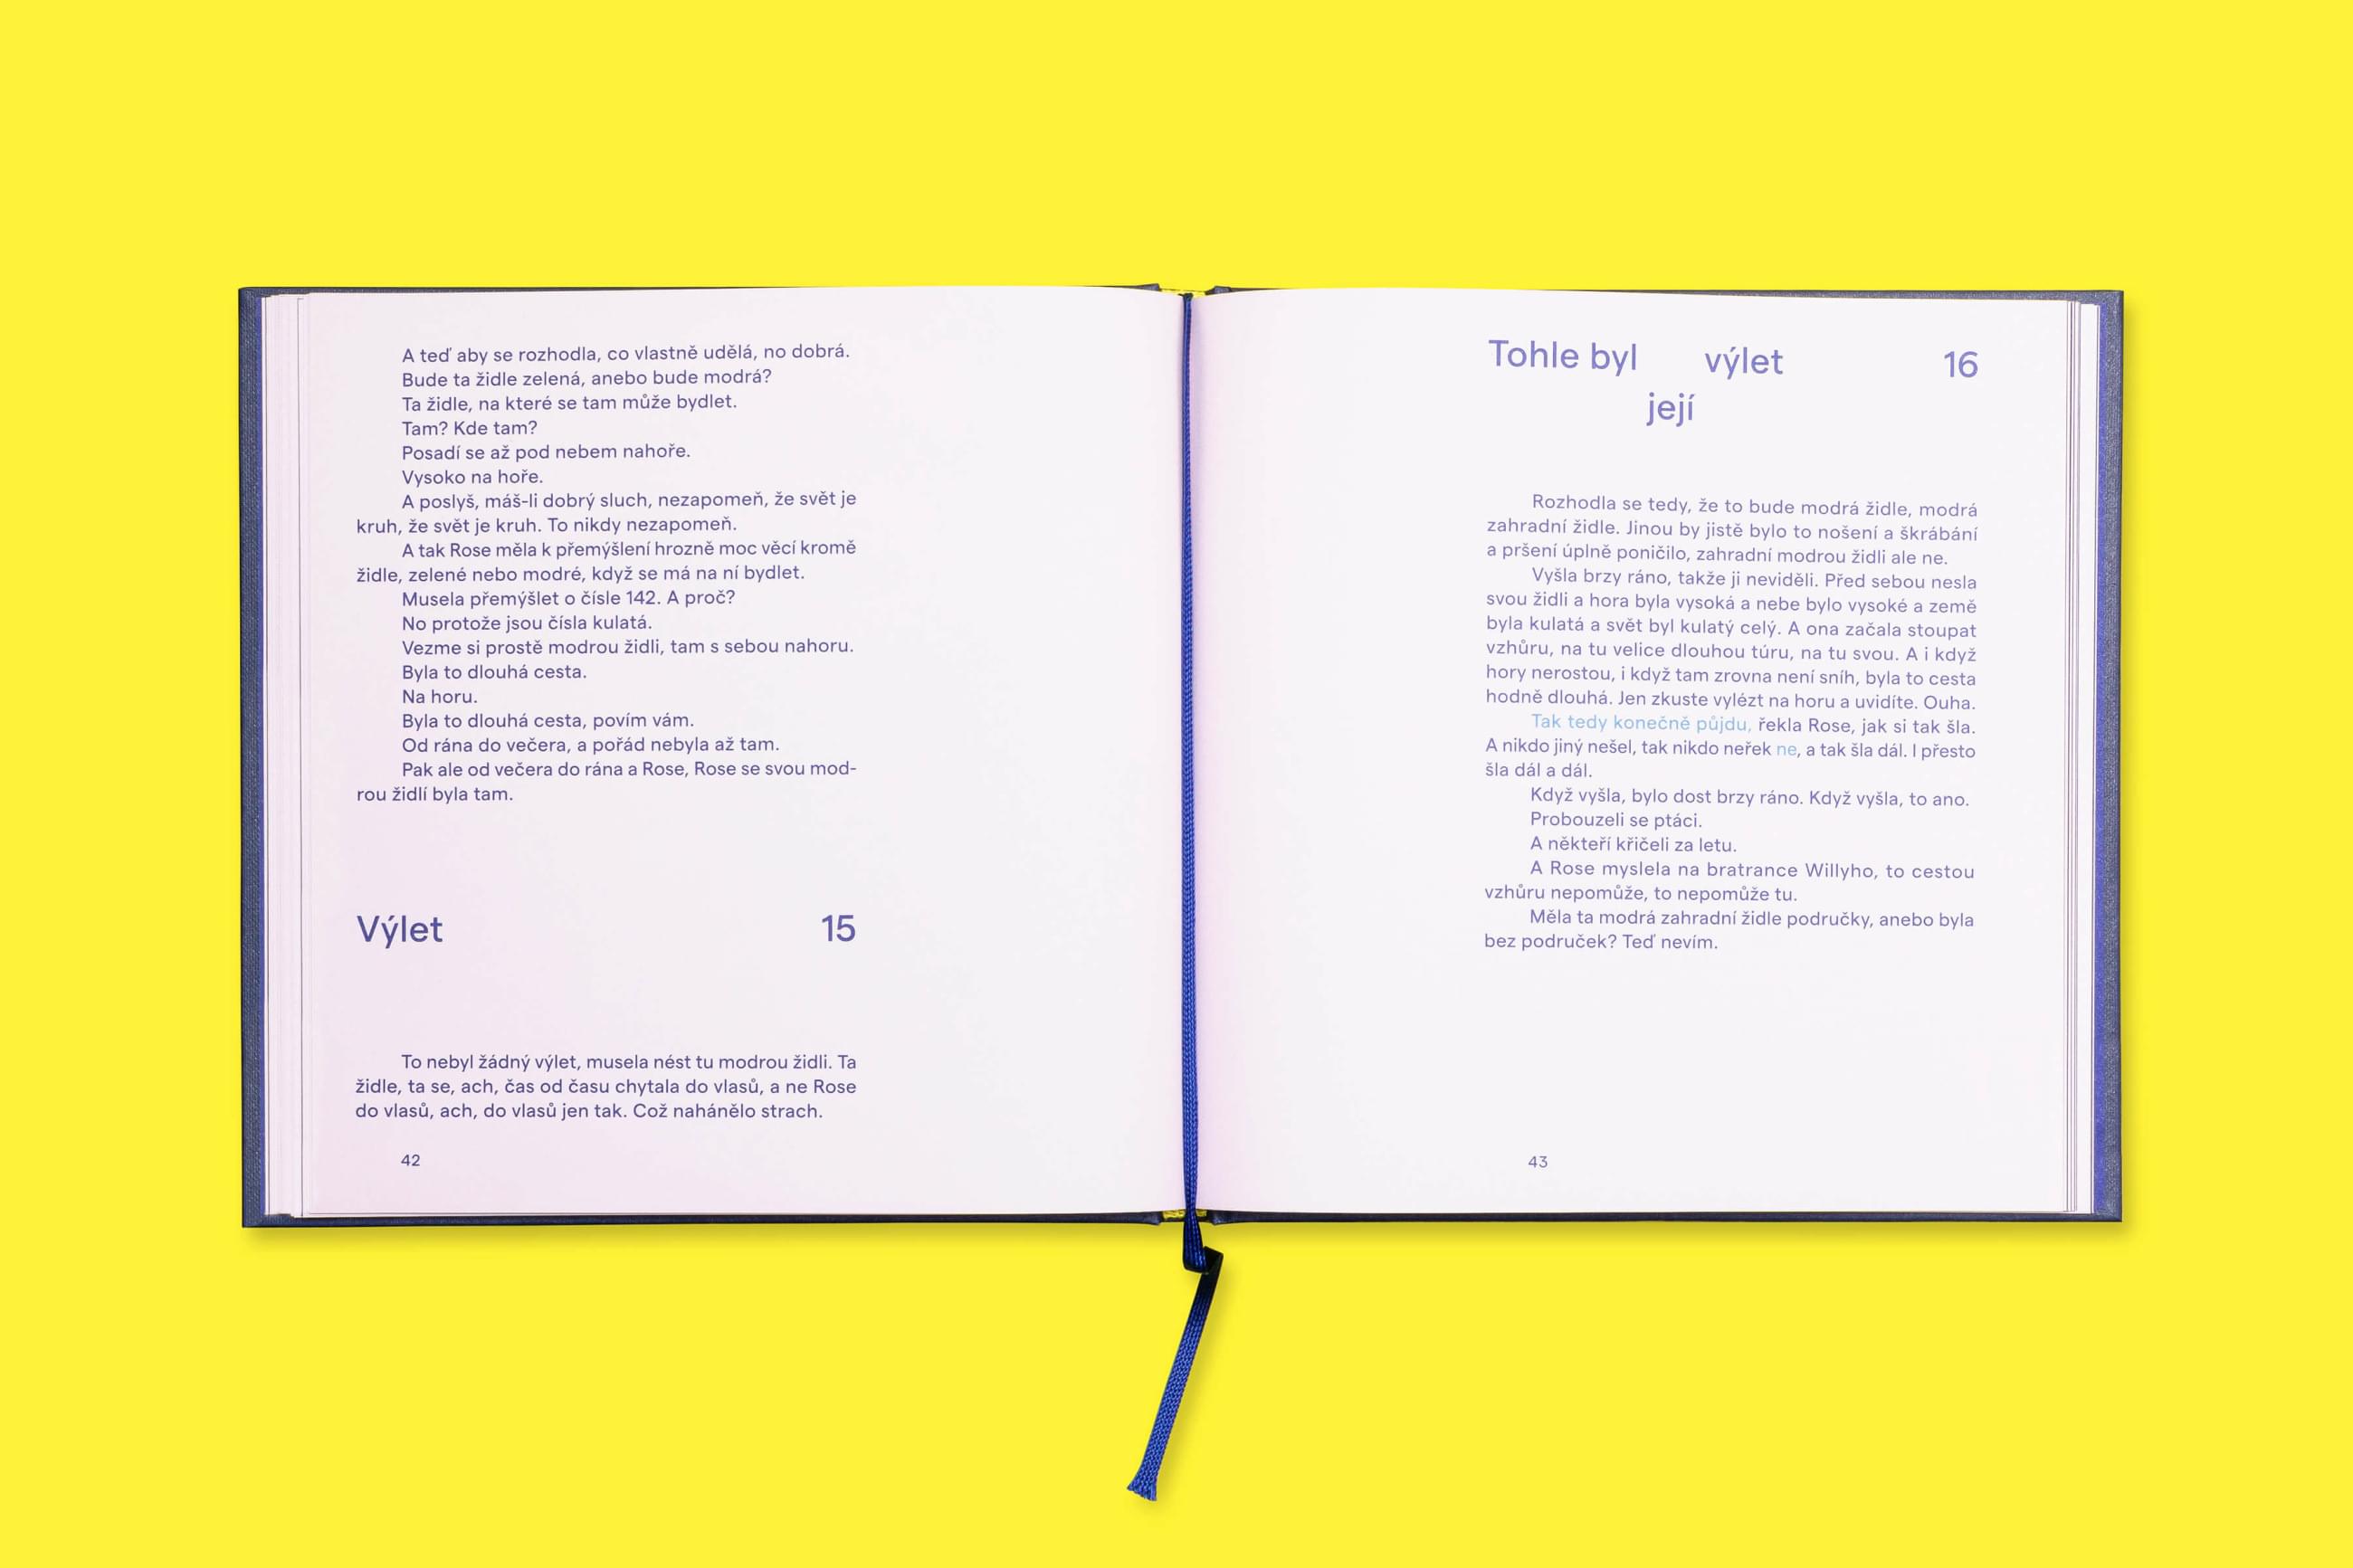 A teď aby se rozhodla, co vlastně udělá, no dobrá.
Bude ta židle zelená, anebo bude modrá?
Ta židle, na které se tam může bydlet.
Tam? Kde tam?
Posadí se až pod nebem nahoře.
Vysoko na hoře.
A poslyš, máš-li dobrý sluch, nezapomeň, že svět je
kruh, že svět je kruh. To nikdy nezapomeň.
A tak Rose měla k přemýšlení hrozně moc věcí kromě
židle, zelené nebo modré, když se má na ní bydlet.
Musela přemýšlet o čísle 142. A proč?
No protože jsou čísla kulatá.
Vezme si prostě modrou židli, tam s sebou nahoru.
Byla to dlouhá cesta.
Na horu.
Byla to dlouhá cesta, povím vám.
Od rána do večera, a pořád nebyla až tam.
Pak ale od večera do rána a Rose, Rose se svou mod-
rou židlí byla tam.
Výlet 15
To nebyl žádný výlet, musela nést tu modrou židli. Ta
židle, ta se, ach, čas od času chytala do vlasů, a ne Rose
do vlasů, ach, do vlasů jen tak. Což nahánělo strach.
42
Tohle byl výlet 16
její
Rozhodla se tedy, že to bude modrá židle, modrá
zahradní židle. Jinou by jistě bylo to nošení a škrábání
a pršení úplně poničilo, zahradní modrou židli ale ne.
Vyšla brzy ráno, takže ji neviděli. Před sebou nesla
svou židli a hora byla vysoká a nebe bylo vysoké a země
byla kulatá a svět byl kulatý celý. A ona začala stoupat
vzhůru, na tu velice dlouhou túru, na tu svou. A i když
hory nerostou, i když tam zrovna není sníh, byla to cesta
hodně dlouhá. Jen zkuste vylézt na horu a uvidíte. Ouha.
Tak tedy konečně půjdu, řekla Rose, jak si tak šla.
A nikdo jiný nešel, tak nikdo neřek ne, a tak šla dál. I přesto
šla dál a dál.
Když vyšla, bylo dost brzy ráno. Když vyšla, to ano.
Probouzeli se ptáci.
A někteří křičeli za letu.
A Rose myslela na bratrance Willyho, to cestou
vzhůru nepomůže, to nepomůže tu.
Měla ta modrá zahradní židle područky, anebo byla
bez područek? Teď nevím.
43